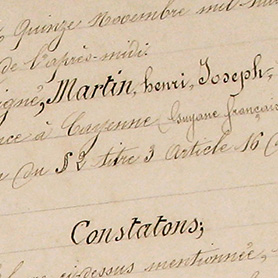 Quinze Novembre mil hu
de l'après-midi
igné, Martin, henri, Joseph-
nce à Cayenne (Guyane français
du § 2 titre 3 Article 16 (
Constatons;
ci-dessus mentionnée,